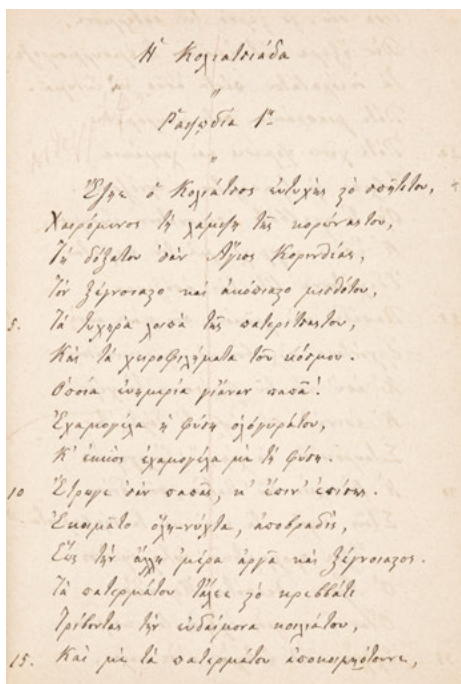 Ἡ Κολιατσιάδα
Ῥαψῳδία 1η
Ἔζηε ὁ Κολιάτσος εὐτυχὴς 'ςὸ σπῆτίτου,
Χαιρόμενος τὴ λάμψη τῆς κορώναςτου,
Τὴ δόξατου 'σὰν Ἅγιος Κορινθίας,
Τὸν ξέγνοιαςο καὶ ἀκόπιαςο μισθότου,
5. Τὰ τυχηρὰ λοιπὰ τῆς πατερίτσαςτου,
Καὶ τὰ χειροφιλήματα τοῦ κόσμου.
Ὁποία εὐημερία γιἄναν παπᾶ!
Ἐχαμογέλα ἡ φύση ὁλόγυράτου,
Κ' ἐκεῖος ἐχαμογέλα μὲ τὴ φύση.
10 Ἔτρωγε 'σὰν παπᾶς, κ' ἔπιν' ἐπίσης.
Ἐκοιμᾶτο ὅλη-νύχτα, ἀποβραδὶς,
Ἕως τὴν ἄλλη 'μέρα ἀργὰ καὶ ξέγνοιαςος.
Τὰ πατερμάτου τἄλεε 'ςὸ κρεββάτι
Τρίβοντας τὴν εὐδαίμονα κοιλιάτου,
15. Καὶ μὲ τὰ πατερμάτου ἀποκοιμηότουνε,